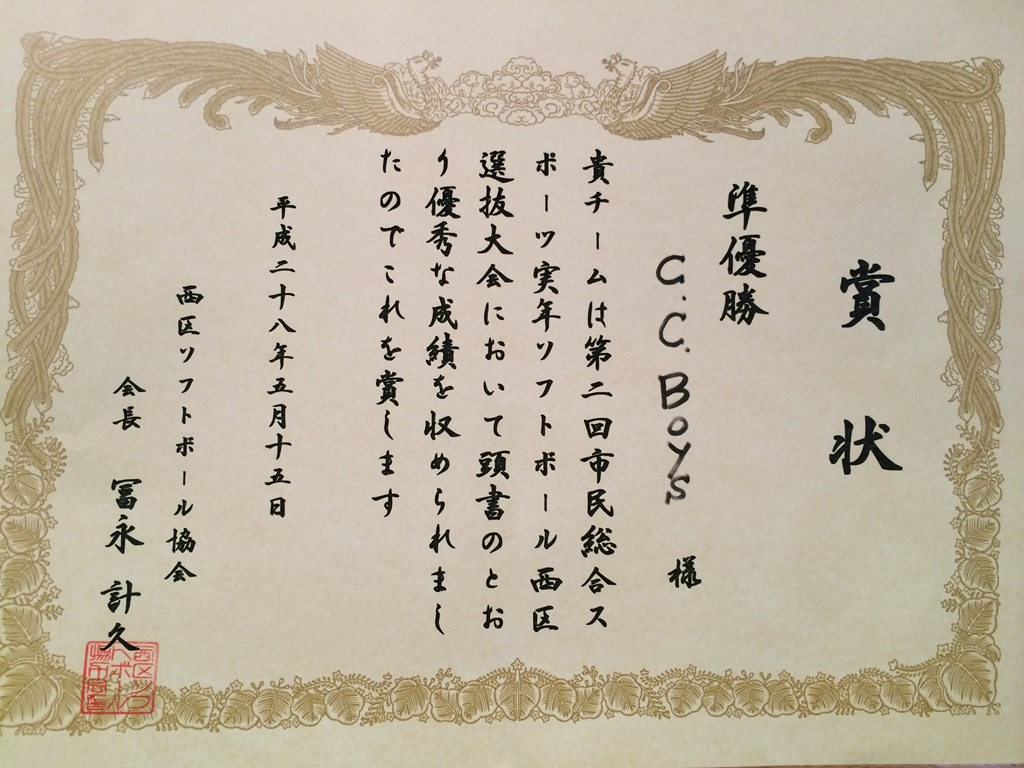 賞状
準優勝
G.C.Boys 様
貴チームは第二回市民総合ス
ポーツ実年ソフトボール西区
選抜大会において頭書のとお
り優秀な成績を収められまし
たのでこれを賞します
平成二十八年五月十五日
西区ソフトボール協会
会長 冨永計久